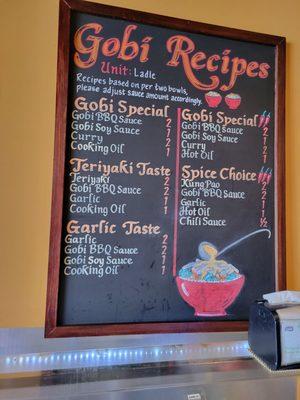 Gobi Recipes
Unit: Ladle
Recipes based on per two bowls,
please adjust sauce amount accordingly.
Gobi Special
Gobi BBQ Sauce 2
Gobi Soy Sauce 1
Curry 1
Cooking Oil 1
Teriyaki Taste
Teriyaki 2
Gobi BBQ Sauce 2
Garlic 1
Cooking Oil 1
Garlic Taste
Garlic 2
Gobi BBQ Sauce 2
Gobi Soy Sauce 1
Cooking Oil 1
Gobi Special
Gobi BBQ Sauce 2
Gobi Soy Sauce 1
Curry 1
Hot Oil 1
Spice Choice
Kung Pao 2
Gobi BBQ Sauce 2
Garlic 1
Hot Oil 1
Chili Sauce ½